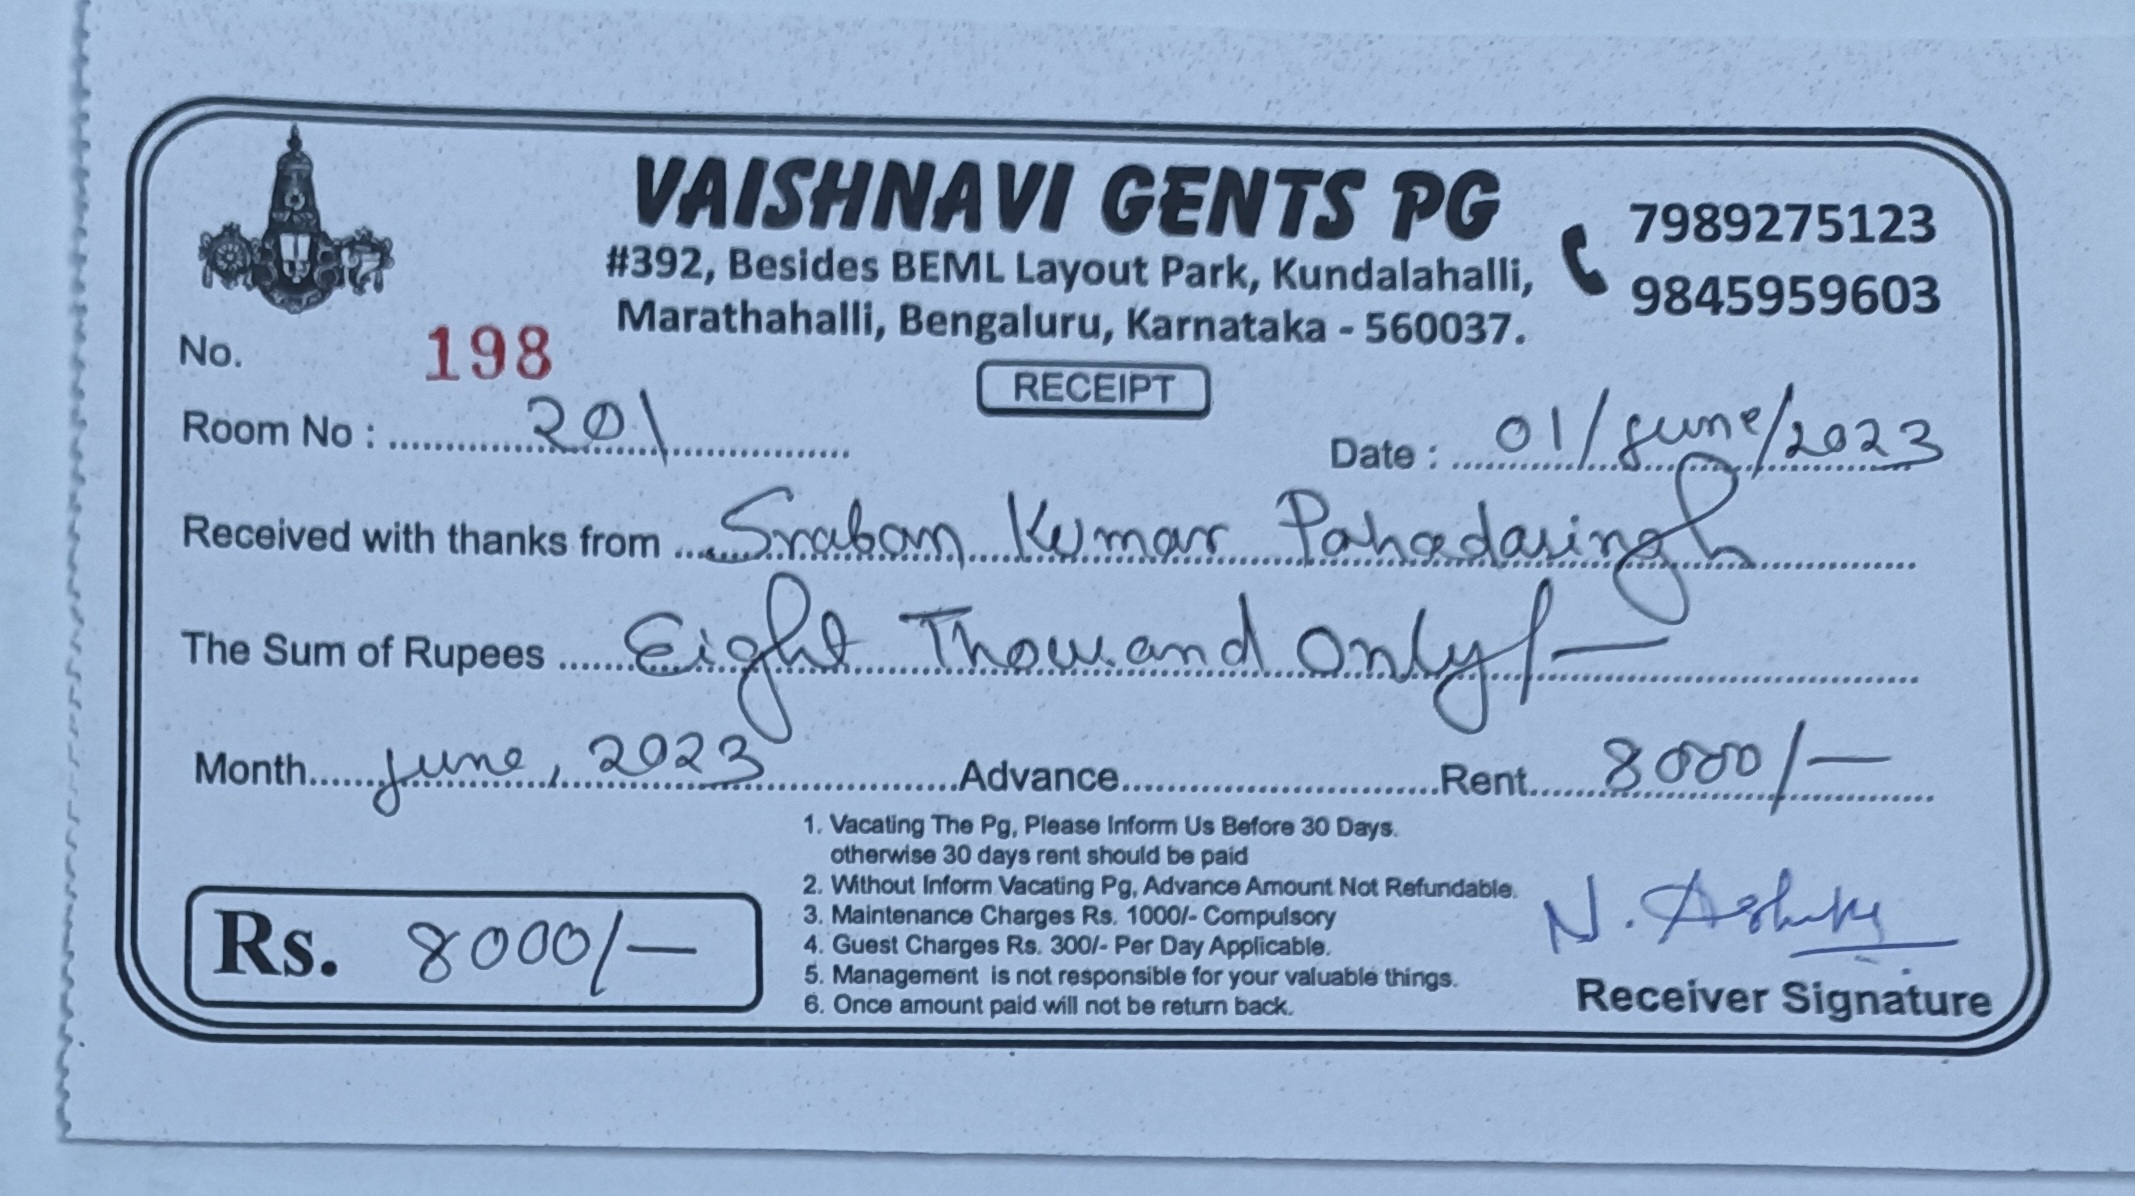 VAISHNAVI GENTS PG
#392, Besides BEML Layout Park, Kundalahalli,
Marathahalli, Bengaluru, Karnataka - 560037.
7989275123
9845959603
No. 198
RECEIPT
Room No : 201
Date : 01/June/2023
Received with thanks from Sraban Kumar Pahadasingh
The Sum of Rupees Eight Thousand Only/-
Month June, 2023 Advance Rent 8000/-
1. Vacating The Pg, Please Inform Us Before 30 Days.
otherwise 30 days rent should be paid
2. Without Inform Vacating Pg, Advance Amount Not Refundable.
3. Maintenance Charges Rs. 1000/- Compulsory
4. Guest Charges Rs. 300/- Per Day Applicable.
5. Management is not responsible for your valuable things.
6. Once amount paid will not be return back.
Rs. 8000/-
N.
Receiver Signature